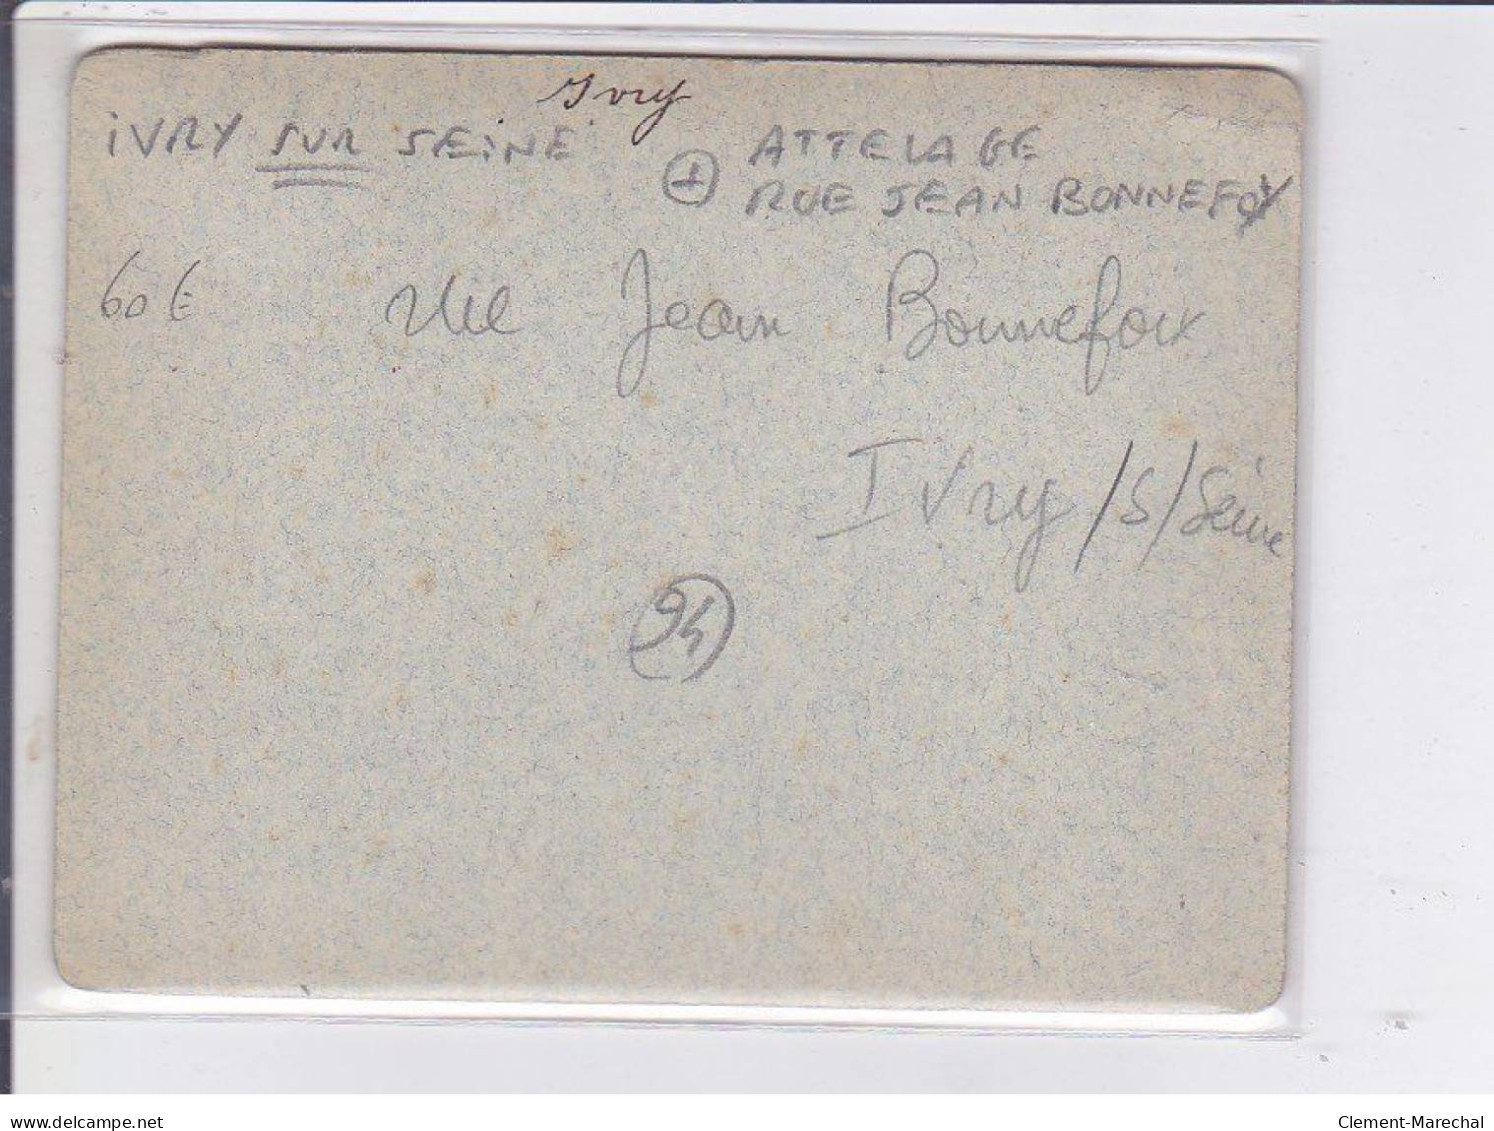 Ivry
IVRY SUR SEINE
+ ATTELAGE
RUE JEAN BONNEFOY
60 €
rue Jean Bonnefoix
Ivry /s/Seine
94
delcampe.net
Clement-Marechal